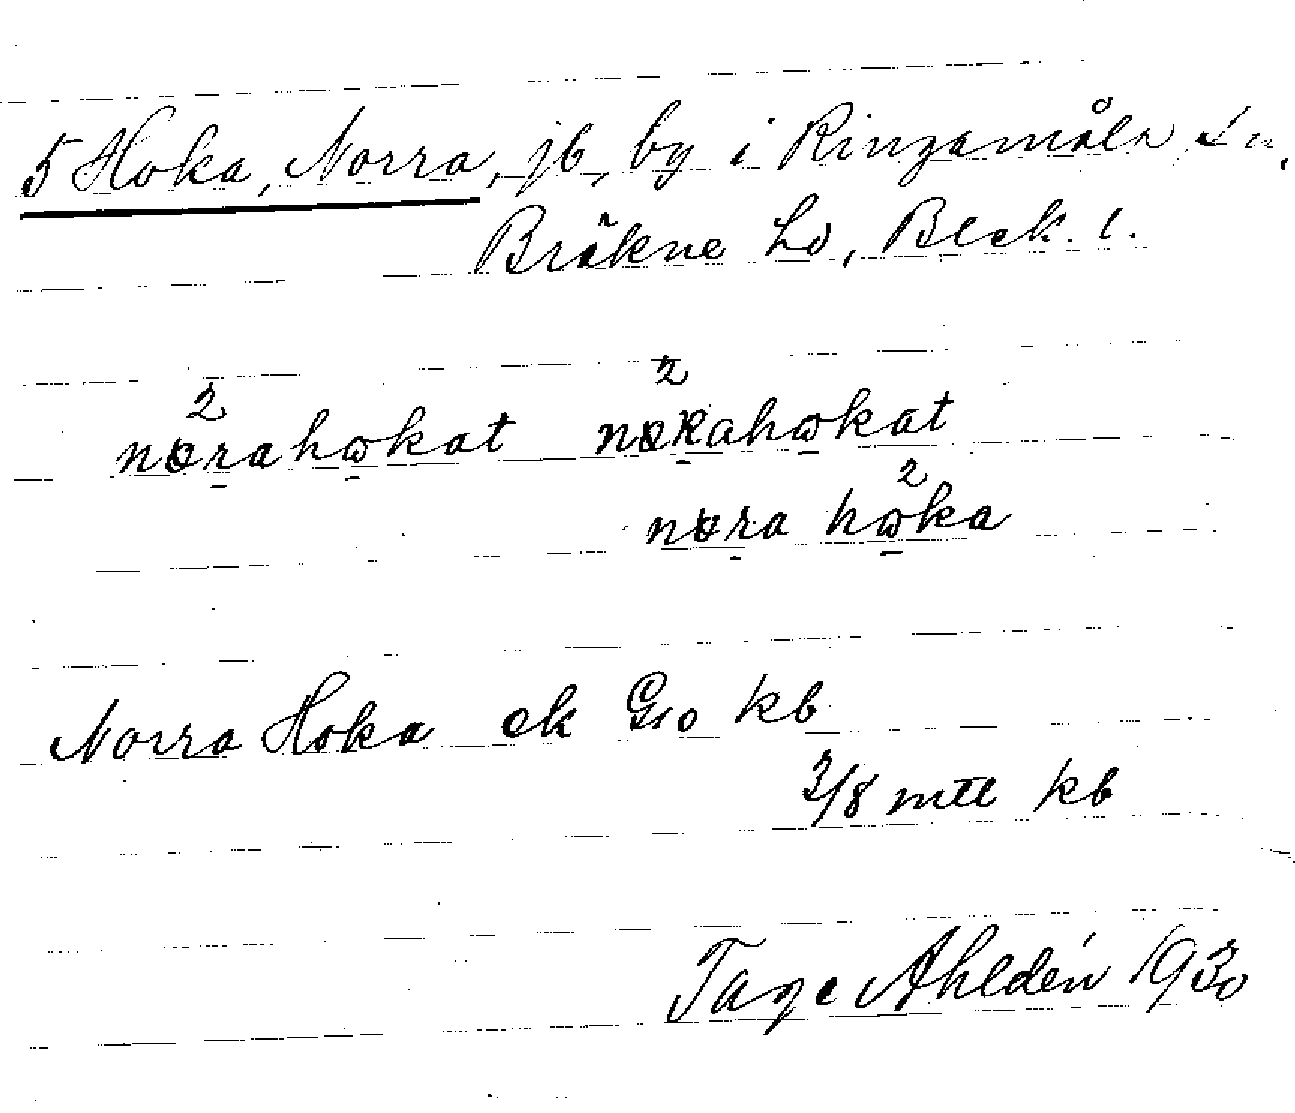 5 Hoka, Norra, jb, by i Ringamåla sn,
Bräkne hd, Blek. l.
2 2
nørahωkat nøRahωkat
2
nøra hωka
Norra Hoka ek Geo kb
3/8 mtl kb
Tage Ahldén 1930